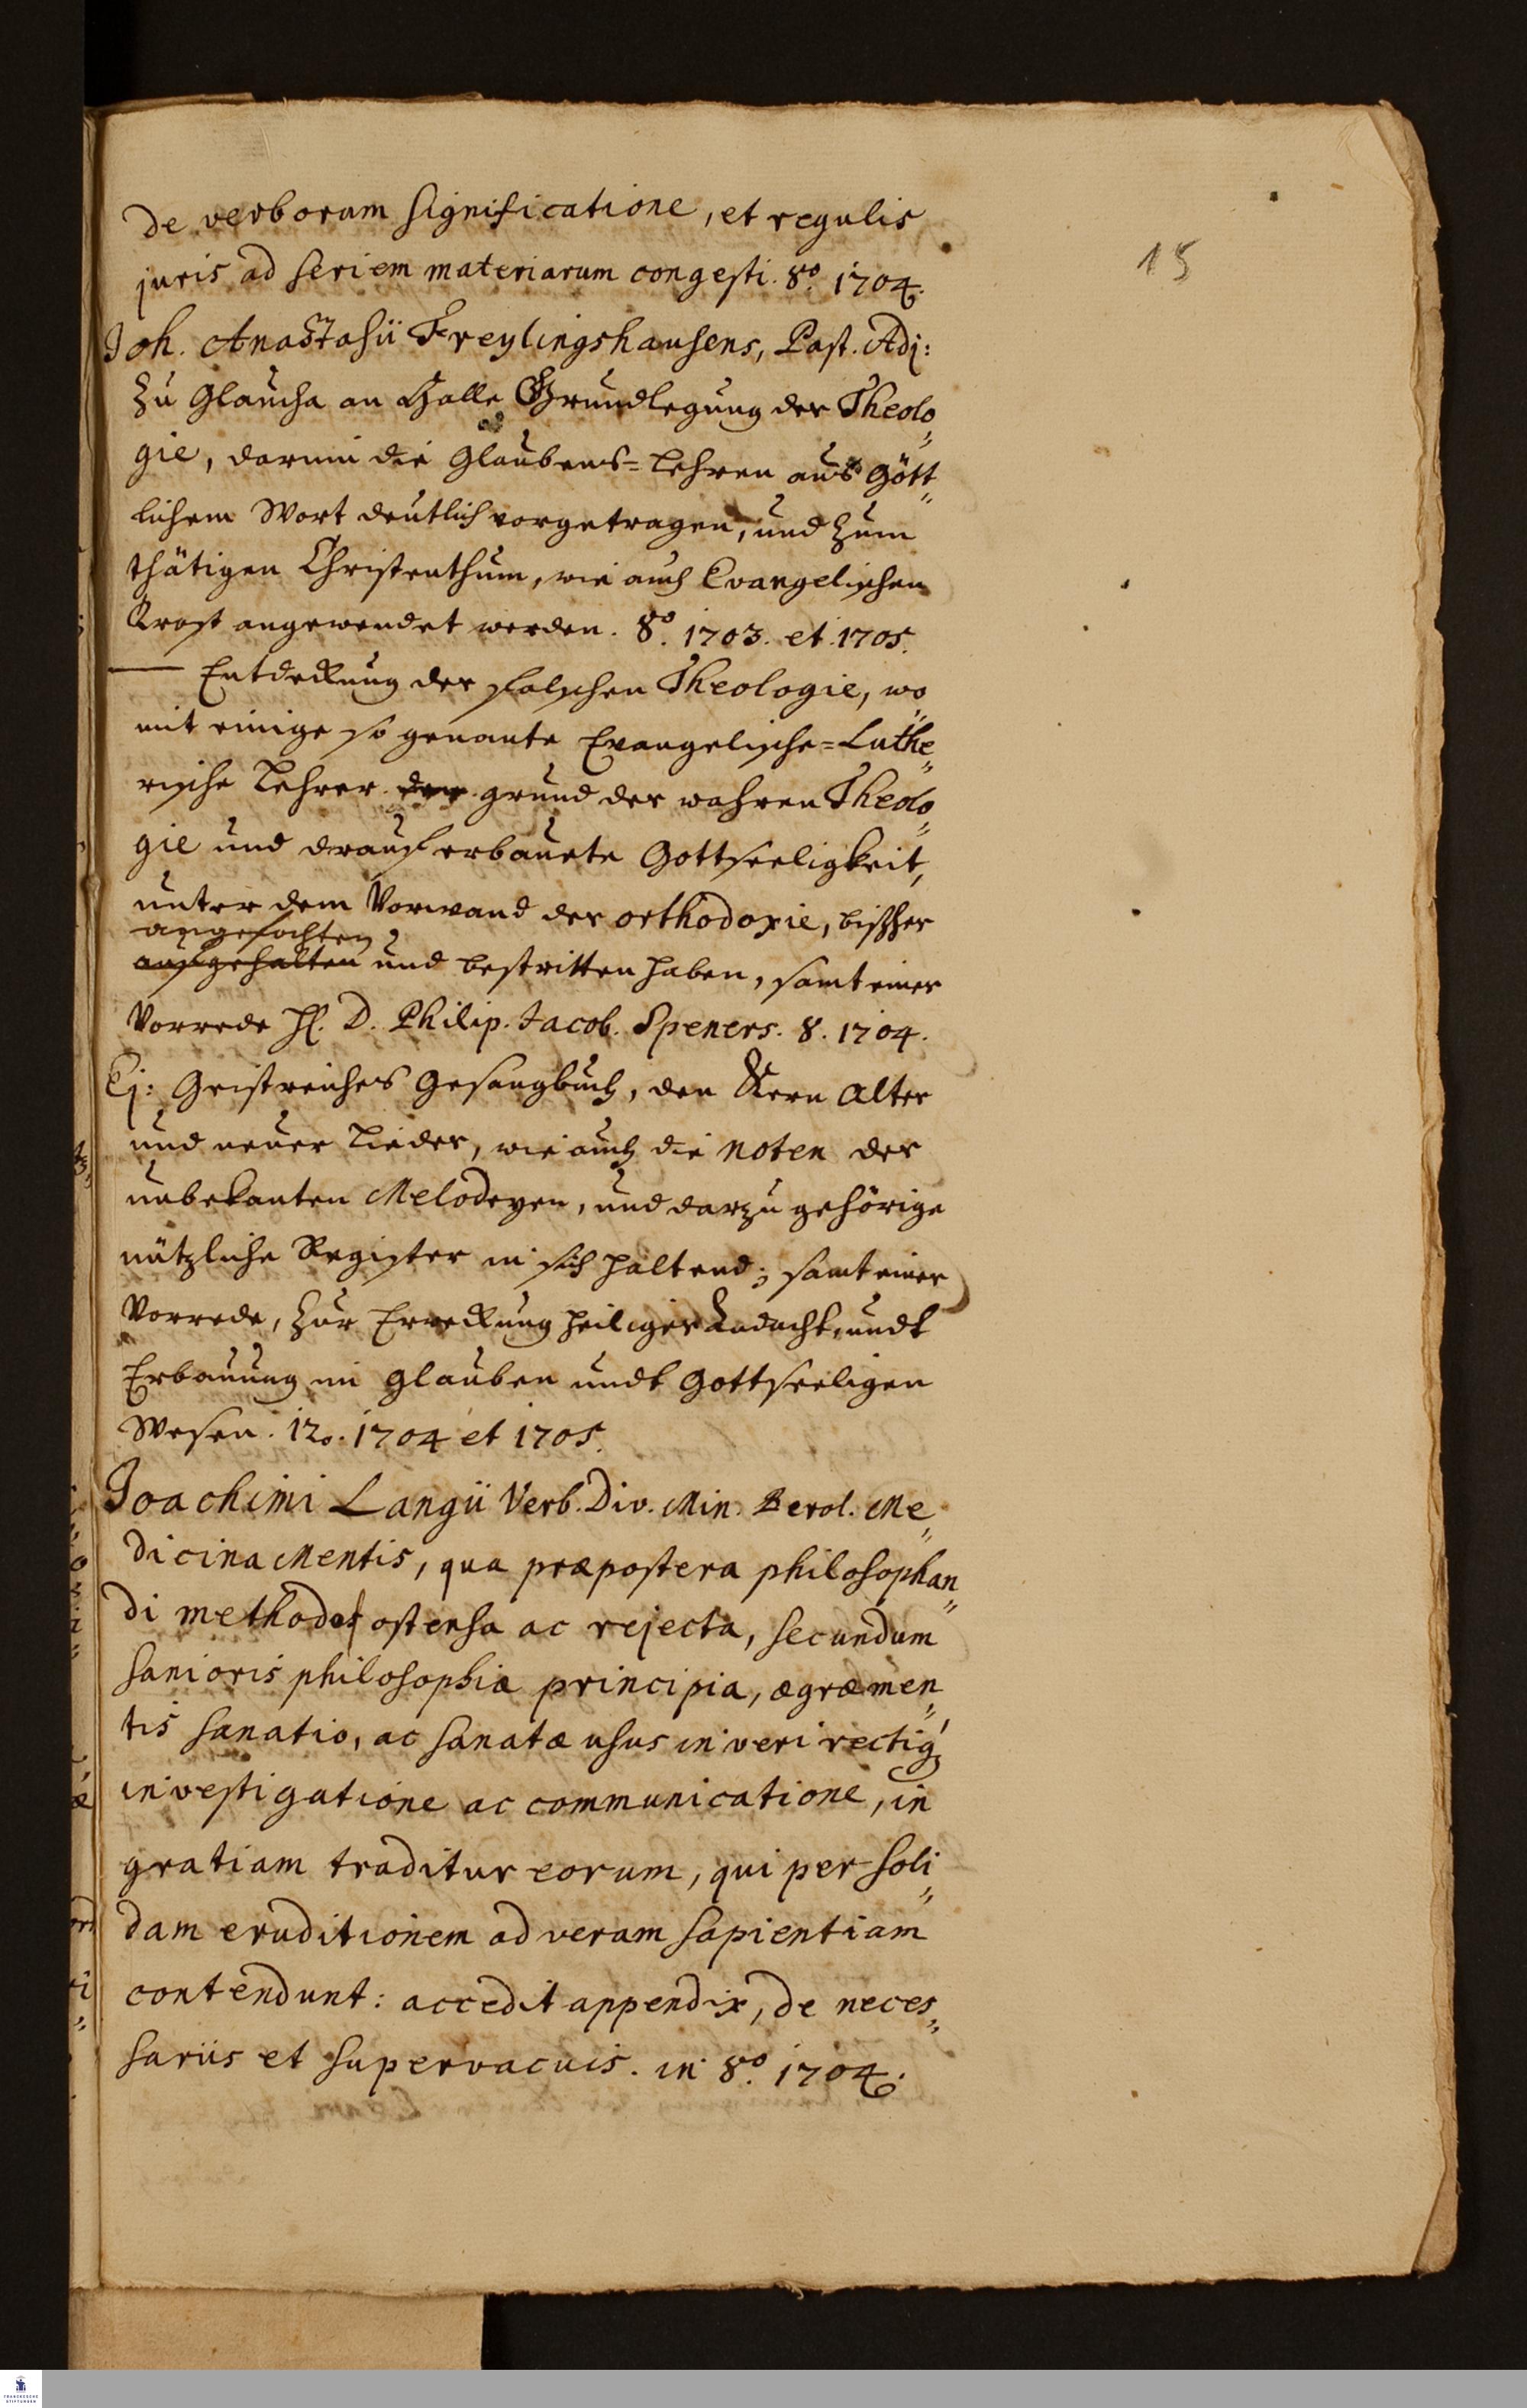 15
de verborum significatione, et regulis
juris ad seriem materiarum congesti. 8º. 1704.
Joh. Anastasii Freylingshausens, Past. Adj:
zu Glaucha an Halle Grundlegung der Theolo„
gie, darinn die Glaubens=Lehren aus Gött„
lichem Wort deutlich vorgetragen, und zum
thätigen Christenthum, wie auch Evangelischen
Trost angewendet werden. 8º. 1703. et. 1705.
— Entdeckung der falschen Theologie, wo„
mit einige so genante Evangelische=Luthe„
rische Lehrer den grund der wahren Theolo„
gie und drauf erbauete Gottseeligkeit,
unter dem Vorwand der orthodoxie, bißher
angefochten
aufgehalten und bestritten haben, samt einer
Vorrede H. D. Philip. Jacob. Speners. 8. 1704.
Ej: Geistreiches Gesangbuch, den Kern Alter
und neuer Lieder, wie auch die Noten der
unbekanten Melodeyen, und darzu gehörige
nützliche Register in sich haltend; samt einer
Vorrede, zur Erweckung heiliger Andacht, undt
Erbauung im glauben undt gottseeligen
Wesen. 12º. 1704 et 1705.
Joachimi Langii Verb. Div. Min. Berol. Me„
dicina Mentis, qua præpostera philosophan„
di methodo ostensa ac rejecta, secundum
sanioris philosophiæ principia, ægræ men„
tis sanatio, ac sanatæ usus in veri rectiq;
investigatione ac communicatione, in
gratiam traditur eorum, qui per soli„
dam eruditionem ad veram sapientiam
contendunt: accedit appendix, de neces„
sariis et supervacuis. in 8º. 1704.
FRANCKESCHE
STIFTUNGEN